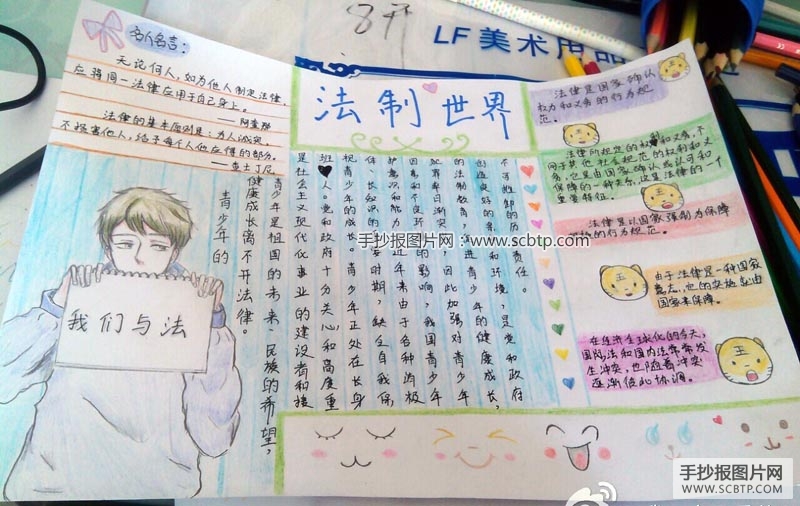 8开
LF美术用品
名人名言:
无论何人,如为他人制定法律,
应将同一法律应用于自己身上。
——阿奎那
法律的基本原则是:为人诚实,
不损害他人,给予每个人他应得的部分。
——查士丁尼
法制世界
我们与法
青少年的
健康成长离不开法律。
青少年是祖国的未来、民族的希望,
是社会主义现代化事业的建设者和接
班人。党和政府十分关心和高度重
视青少年的成长。青少年正处在长身
体、长知识的重要时期,缺乏自我保
护意识和能力。近年来由于各种消极
因素和不良环境的影响,我国青少年
犯罪率日渐突出,因此加强对青少年
的法制教育,促进青少年的健康成长,
创造良好的和环境,是党和政府
不可推卸的历史责任。
法律是国家确认
权力和义务的行为规
范。
法律所规定的权利和义务,不
同于其他社会规范的权利和义
务,它是由国家确认或认可和
保障的一种关系,这是法律的一个
重要特征。
法律是以国家强制为保障
的行为规范。
由于法律是一种国家
意志,它的实施就由
国家来保障。
在经济全球化的今天,
国际法和国内法常常发
生冲突,也随着冲突
逐渐彼此协调。
王
手抄报图片网:www.scbtp.com
手抄报图片网
WWW.SCBTP.COM